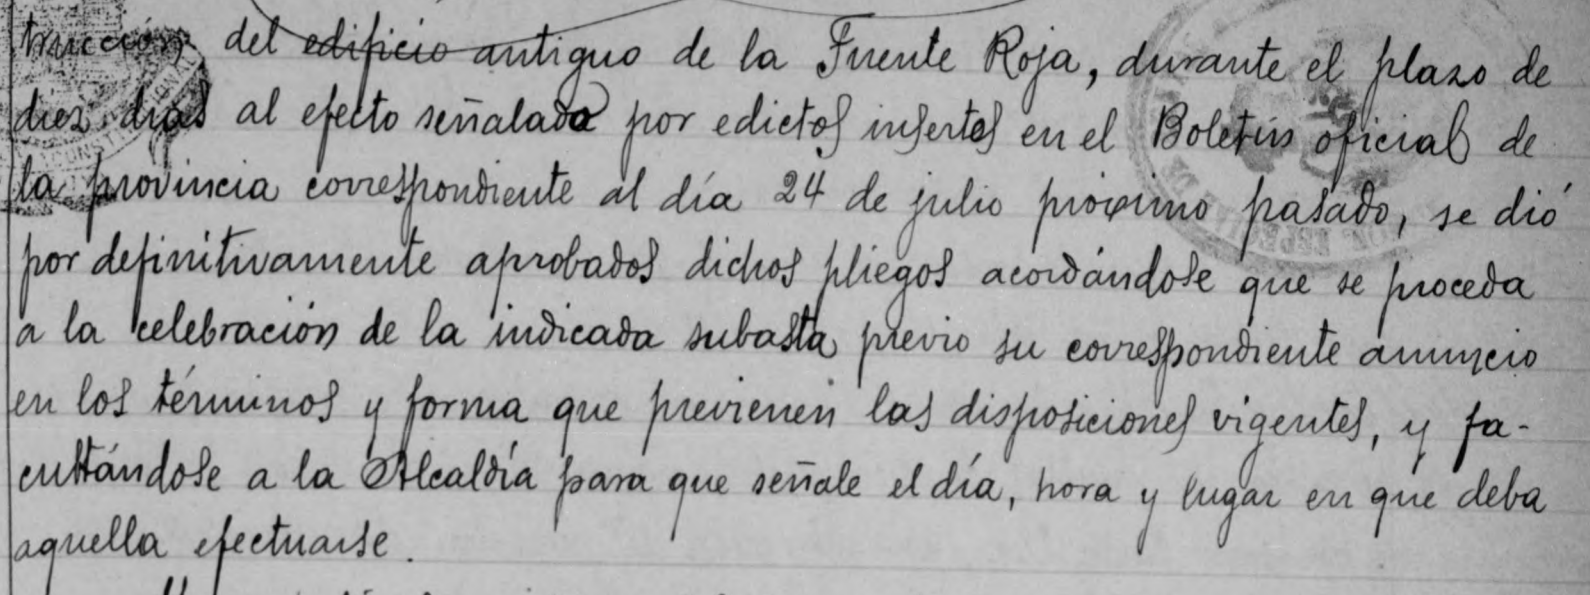 trucción del edificio antiguo de la Fuente Roja, durante el plazo de
diez dias al efecto señalado por edictos insertos en el Boletín oficial de
la provincia correspondiente al día 24 de julio próximo pasado, se dió
por definitivamente aprobados dichos pliegos acordándose que se proceda
a la celebración de la indicada subasta previo su correspondiente anuncio
en los términos y forma que previenen las disposiciones vigentes, y fa-
cultándose a la Alcaldía para que señale el día, hora y lugar en que deba
aquella efectuarse.